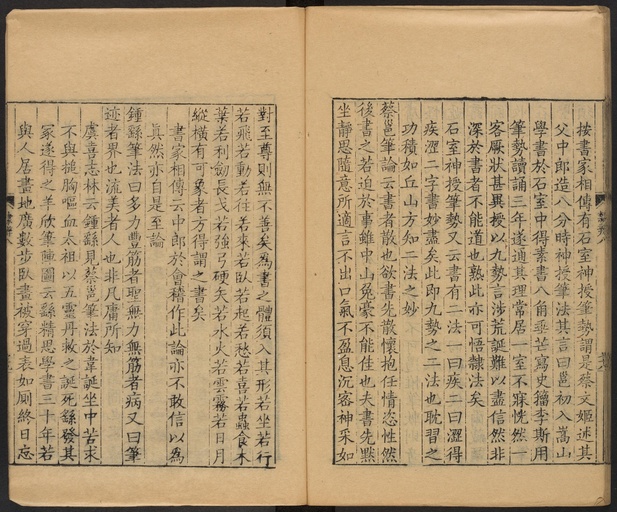 按書家相傳有石室神授筆勢謂是蔡文姬述其
父中郎造八分時神授筆法其言曰邕初入嵩山
學書於石室中得素書八角垂芒寫史籀李斯用
筆勢讀誦三年遂通其理常居一室不寐恍然一
客厥狀甚異授以九勢言涉荒誕難以盡信然非
深於書者不能道也熟此亦可悟隸法矣
石室神授筆勢又云書有二法一曰疾二曰澀得
疾澀二字書妙盡矣此即九勢之二法也耽習之
功積如丘山方知二法之妙
蔡邕筆論云書者散也欲書先散懷抱任情恣性然
後書之若迫於事雖中山兔豪不能佳也夫書先黙
坐静思隨意所適言不出口氣不盈息沉密神采如
對至尊則無不善矣為書之體須入其形若坐若行
若飛若動若往若來若臥若起若愁若喜若蟲食木
葉若利劒長戈若強弓硬矢若水火若雲霧若日月
縱橫有可象者方得謂之書矣
書家相傳云中郎於會稽作此論亦不敢信以為
真然亦自是至論
鍾繇筆法曰多力豐筋者聖無力無筋者病又曰筆
迹者界也流美者人也非凡庸所知
虞喜志林云鍾繇見蔡邕筆法於韋誕坐中苦求
不與搥胸嘔血太祖以五靈丹救之誕死繇發其
冢遂得之羊欣筆陣圖云繇精思學書三十年若
與人居畫地廣數步臥畫被穿過表如厠終日忘